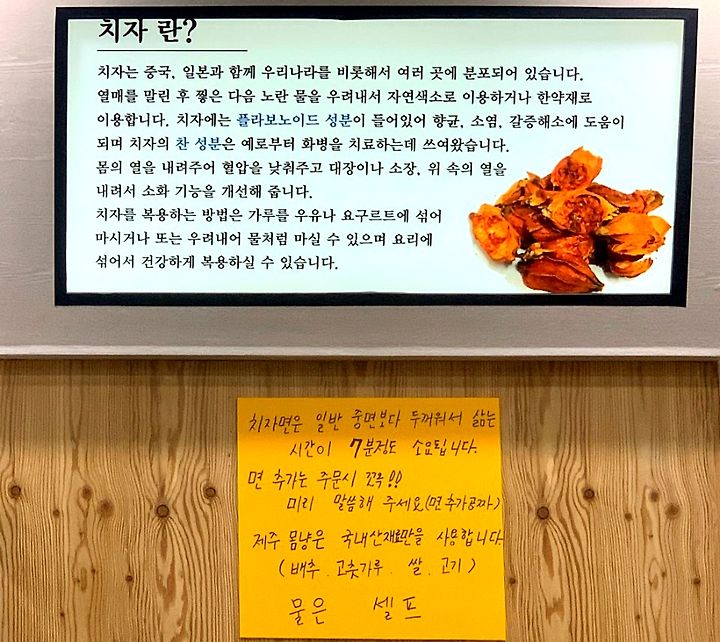 치자 란?
치자는 중국, 일본과 함께 우리나라를 비롯해서 여러 곳에 분포되어 있습니다.
열매를 말린 후 찧은 다음 노란 물을 우려내서 자연색소로 이용하거나 한약재로
이용합니다. 치자에는 플라보노이드 성분이 들어있어 향균, 소염, 갈증해소에 도움이
되며 치자의 찬 성분은 예로부터 화병을 치료하는데 쓰여왔습니다.
몸의 열을 내려주어 혈압을 낮춰주고 대장이나 소장, 위 속의 열을
내려서 소화 기능을 개선해 줍니다.
치자를 복용하는 방법은 가루를 우유나 요구르트에 섞어
마시거나 또는 우려내어 물처럼 마실 수 있으며 요리에
섞어서 건강하게 복용하실 수 있습니다.
치자면은 일반 중면보다 두꺼워서 삶는
시간이 7분정도 소요됩니다.
면 추가는 주문시 꼭!!
미리 말씀해 주세요(면추가공짜)
제주 몸냥은 국내산재료만을 사용합니다.
(배추. 고춧가루. 쌀. 고기)
물은 셀프